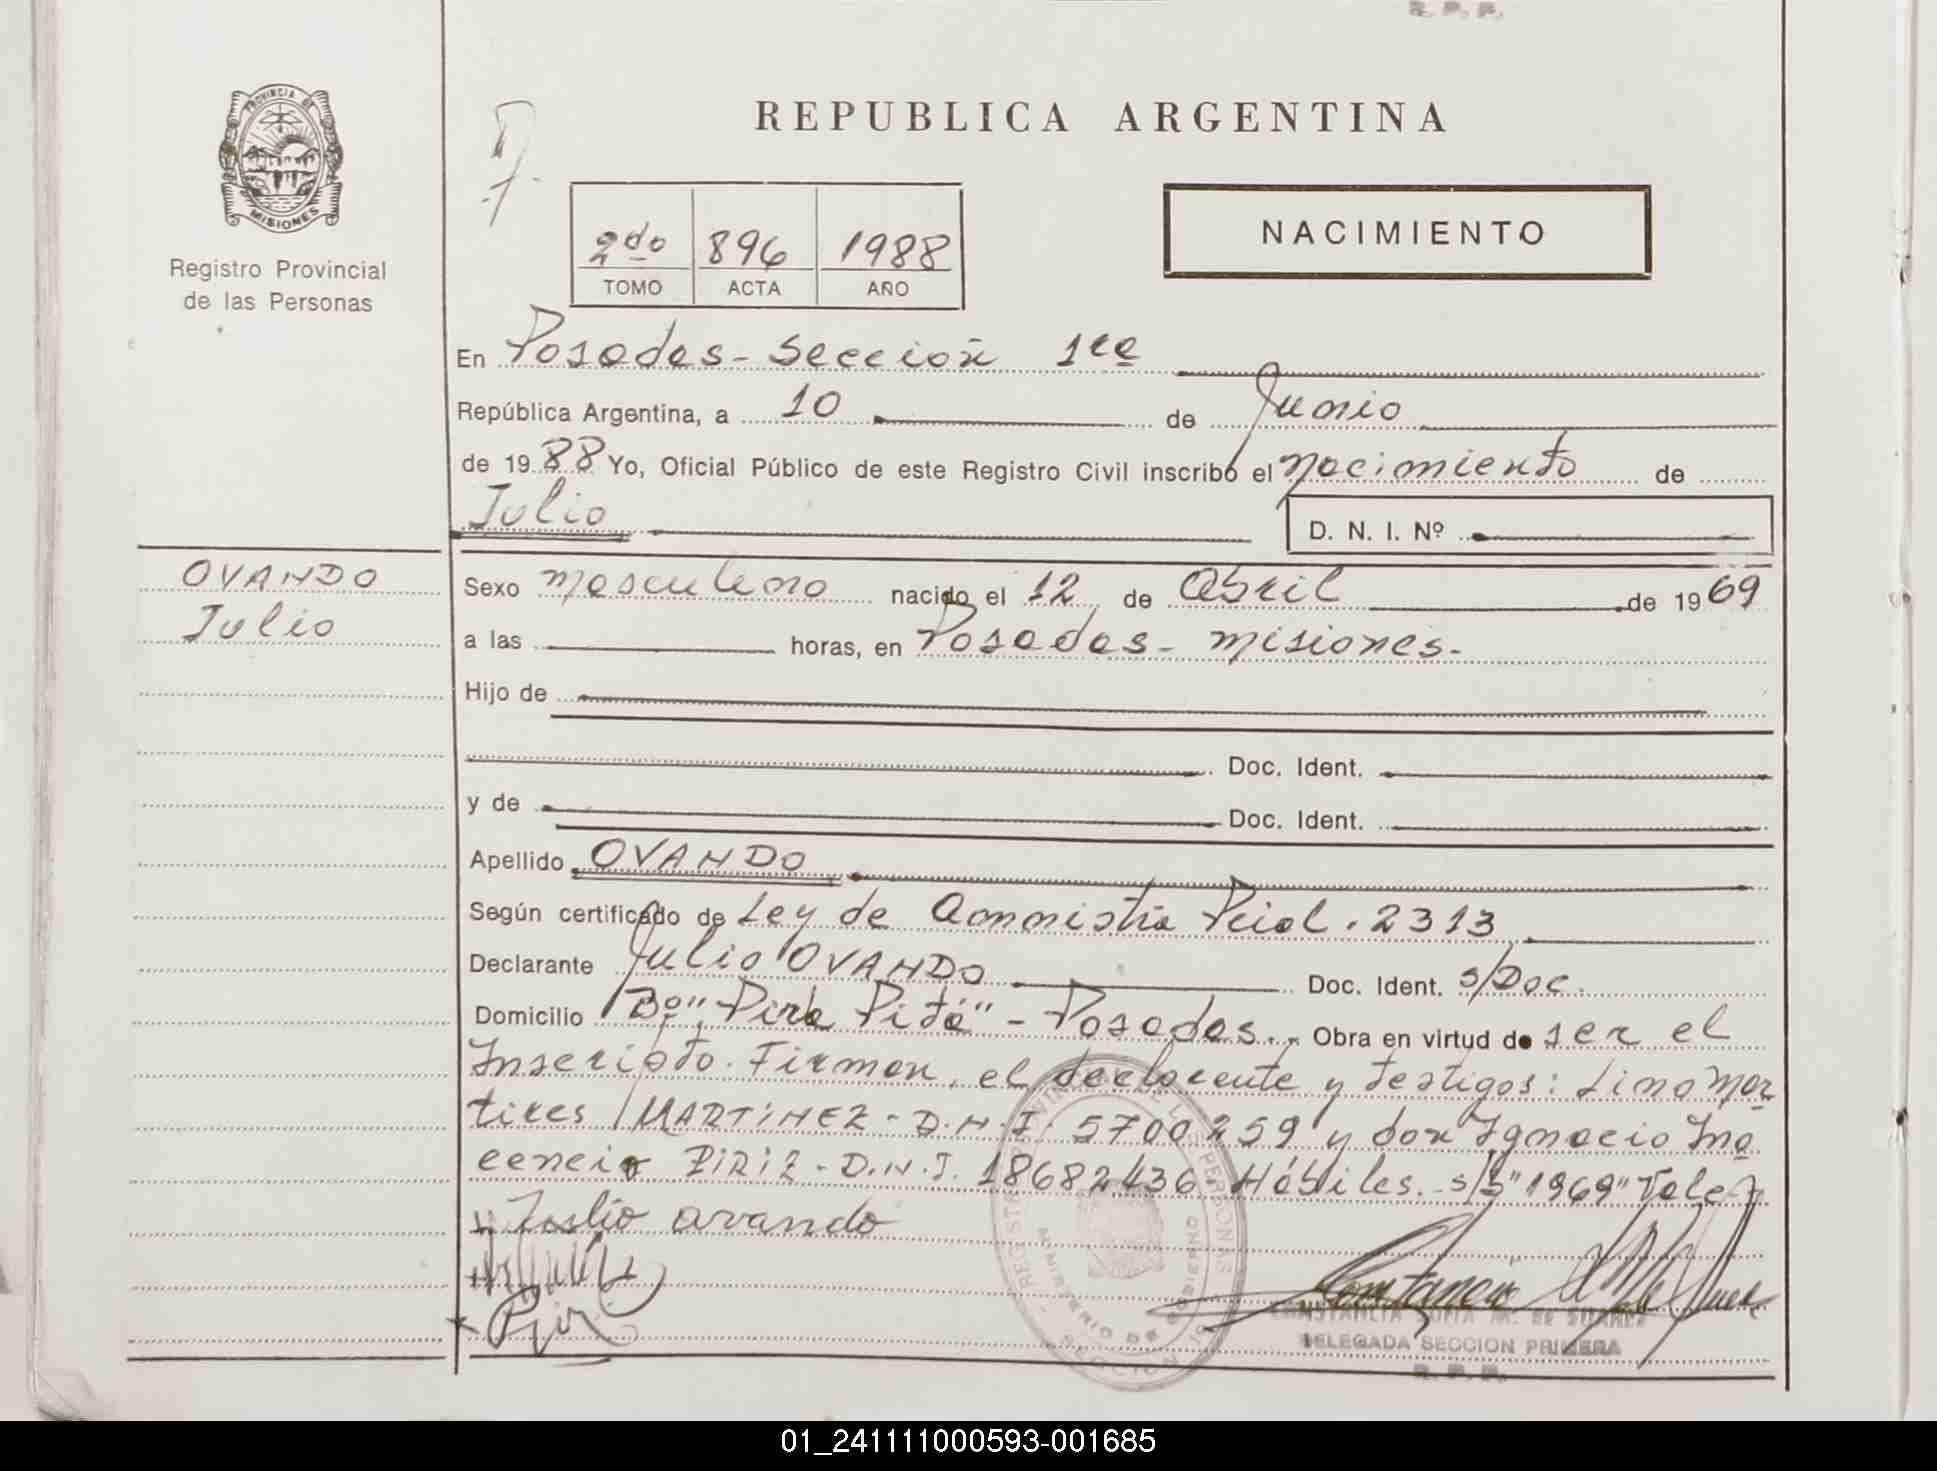 R. P. P.
PROVINCIA DE
MISIONES
Registro Provincial
de las Personas
REPUBLICA ARGENTINA
2do 896 1988
TOMO ACTA AÑO
NACIMIENTO
En Posadas - Sección 1ra
República Argentina, a 10 de Junio
de 1988 Yo, Oficial Público de este Registro Civil inscribo el nacimiento de
Julio
D. N. I. Nº
OVANDO
Julio
Sexo masculino nacido el 12 de Abril de 1969
a las horas, en Posadas - Misiones.
Hijo de
Doc. Ident.
y de Doc. Ident.
Apellido OVANDO
Según certificado de Ley de Ammistía Pcial. 2313
Declarante Julio OVANDO Doc. Ident. s/Doc.
Domicilio Bº "Pira Pitá" - Posadas. Obra en virtud de ser el
Inscripto. Firman, el declarante y testigos: Lino Mar
tires MARTINEZ - D.N.I. 5700259 y don Ignacio Ino
cencio PIRIZ - D.N.I. 18682436 Hábiles. - s/b "1969" Vale
Julio ovando
CONSTANCIA SOFIA M. DE SUAREZ
DELEGADA SECCION PRIMERA
R. P. P.
01_241111000593-001685